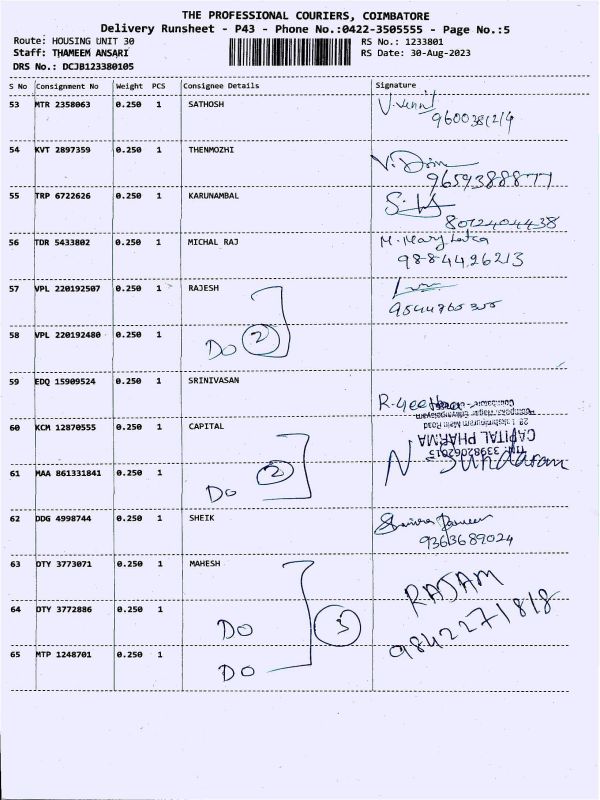 THE PROFESSIONAL COURIERS, COIMBATORE
Delivery Runsheet - P43 - Phone No.:0422-3505555 - Page No.:5
Route: HOUSING UNIT 30 RS No.: 1233801
Staff: THAMEEM ANSARI RS Date: 30-Aug-2023
DRS No.: DCJB123380105
S No Consignment No Weight PCS Consignee Details Signature
53 MTR 2358063 0.250 1 SATHOSH
9600381214
54 KVT 2897359 0.250 1 THENMOZHI
9659388877
55 TRP 6722626 0.250 1 KARUNAMBAL
8012404438
56 TDR 5433802 0.250 1 MICHAL RAJ M. Mary
9884426213
57 VPL 220192507 0.250 1 RAJESH
9544765355
58 VPL 220192480 0.250 1 Do 2
59 EDQ 15909524 0.250 1 SRINIVASAN
60 KCM 12870555 0.250 1 CAPITAL
CAPITAL PHARMA
61 MAA 861331841 0.250 1 Do 2 N Sundaram
62 DDG 4998744 0.250 1 SHEIK
9363689024
63 DTY 3773071 0.250 1 MAHESH RAJAM
64 DTY 3772886 0.250 1 Do 3 9842271818
65 MTP 1248701 0.250 1 Do